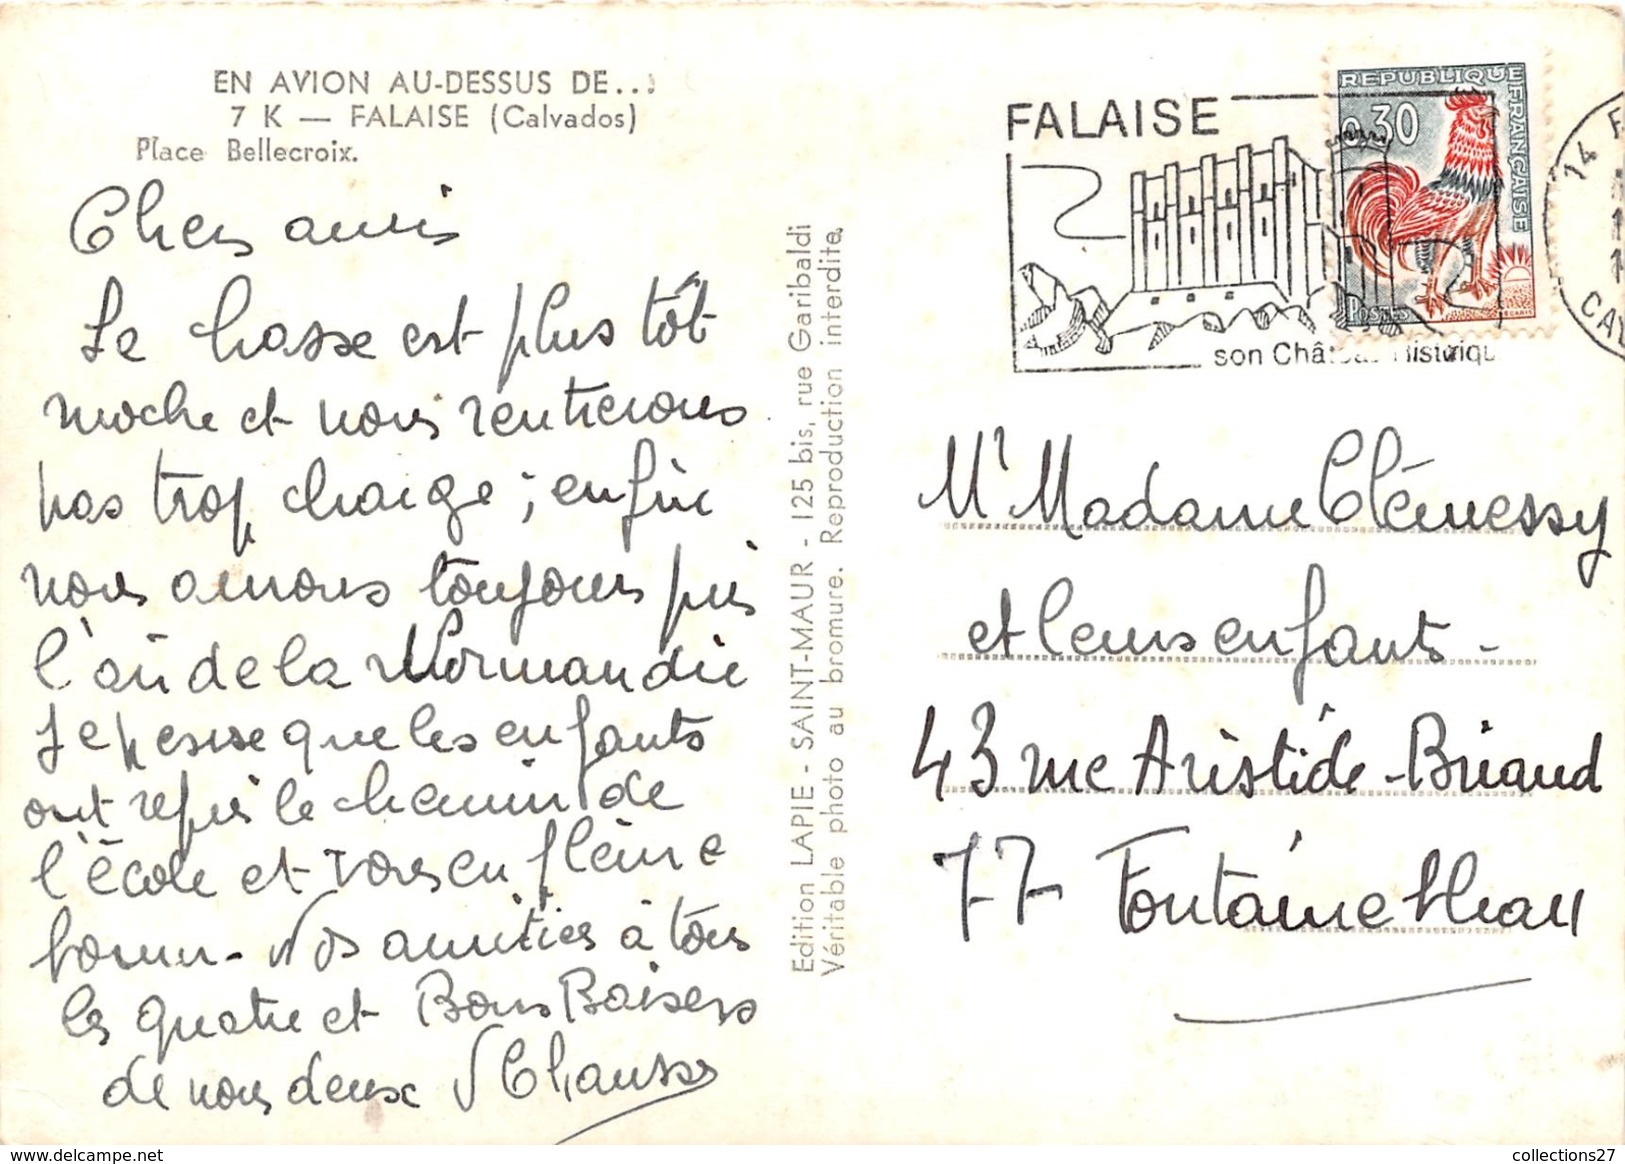 EN AVION AU-DESSUS DE...
7 K — FALAISE (Calvados)
Place Bellecroix.
Chers amis
La chasse est plus tôt
moche et nous rentrerons
pas trop chargé ; enfin
nous aurons toujours pris
l'air de la Normandie
Je pense que les enfants
ont repris le chemin de
l'école et vous en pleine
forme - Nos amitiés à tous
les quatre et Bons Baisers
de nous deux
Edition LAPIE - SAINT-MAUR - 125 bis, rue Garibaldi
Véritable photo au bromure. Reproduction interdite.
FALAISE
son Château Historique
REPUBLIQUE FRANÇAISE
0,30
POSTES
DECARIS
14
CAL
Mr Madame Clémessy
et leurs enfants -
43 rue Aristide-Briand
77 Fontainebleau
www.delcampe.net
collections27